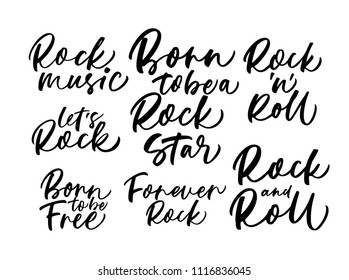 Rock
music
Born
to be a
Rock
Star
Rock
'n'
Roll
let's
Rock
Born
to be
Free
Forever
Rock
Rock
and
Roll
shutterstock.com · 1116836045